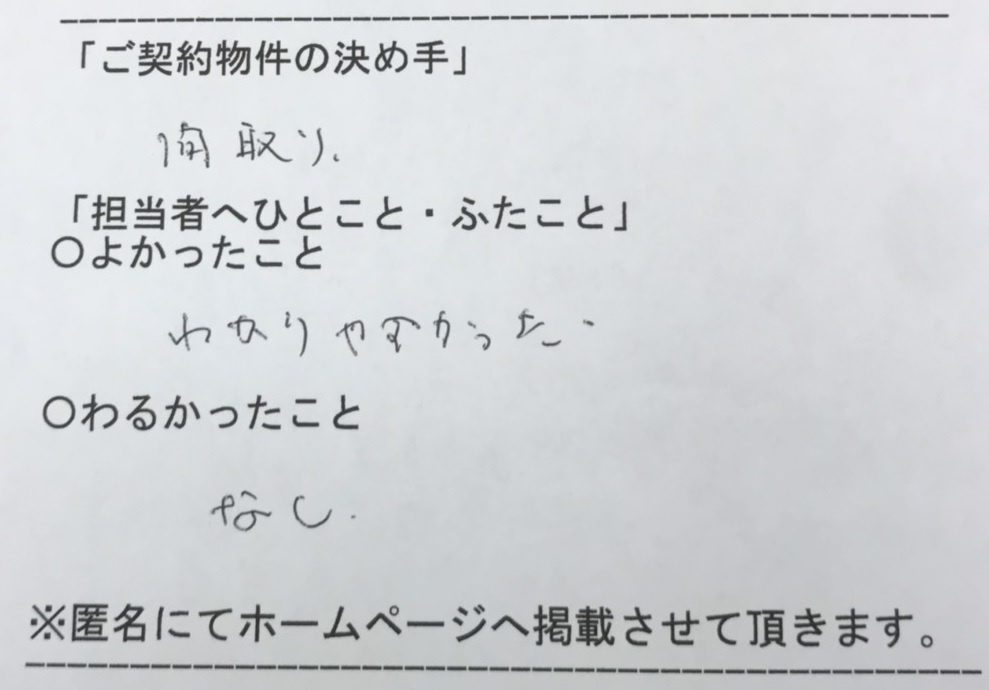 「ご契約物件の決め手」
間取り.
「担当者へひとこと・ふたこと」
〇よかったこと
わかりやすかった.
〇わるかったこと
なし.
※匿名にてホームページへ掲載させて頂きます。